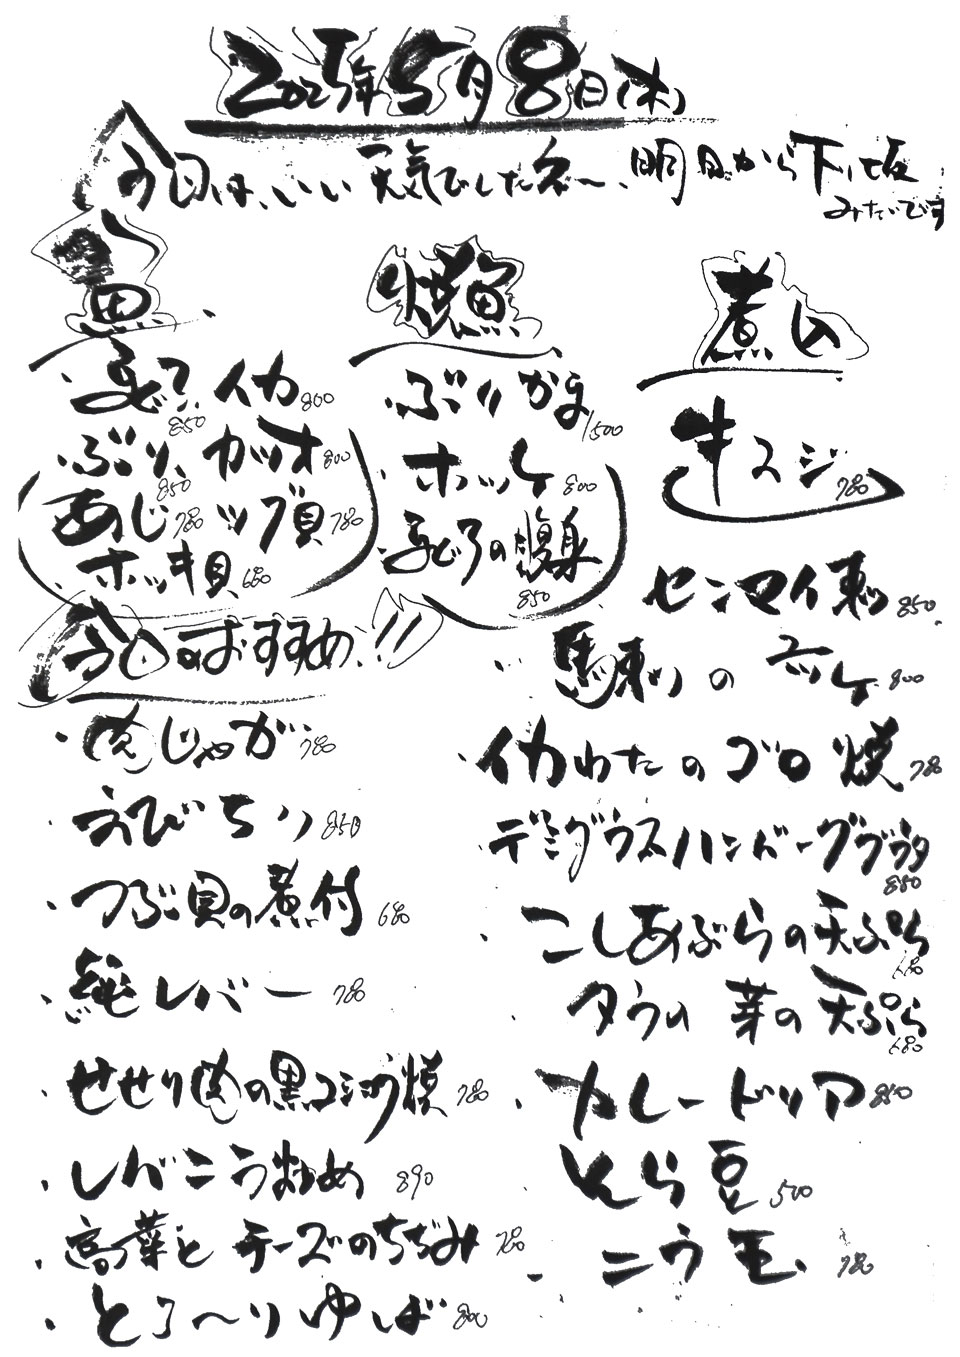 2025年5月8日(木)
今日は、いい天気でしたネ〜、明日から下り坂
みたいです
魚
まぐろ 850 イカ 800
ぶり 850 カツオ 800
あじ 780 ツブ貝 780
ホッキ貝 680
焼魚
ぶりかま 1500
ホッケ 800
まぐろの腹身 850
煮込
牛スジ 780
今日のおすすめ!!
肉じゃが 780
えびチリ 850
つぶ貝の煮付 680
純レバー 780
せせり肉の黒コショウ焼 780
レバニラ炒め 890
高菜とチーズのちぢみ 780
とろ〜りゆば 800
センマイ刺 850
馬刺しのユッケ 800
イカわたのゴロ焼 780
デミグラスハンバーググラタン 880
こしあぶらの天ぷら 680
タラの芽の天ぷら 680
カレードリア 850
そら豆 500
ニラ玉 780